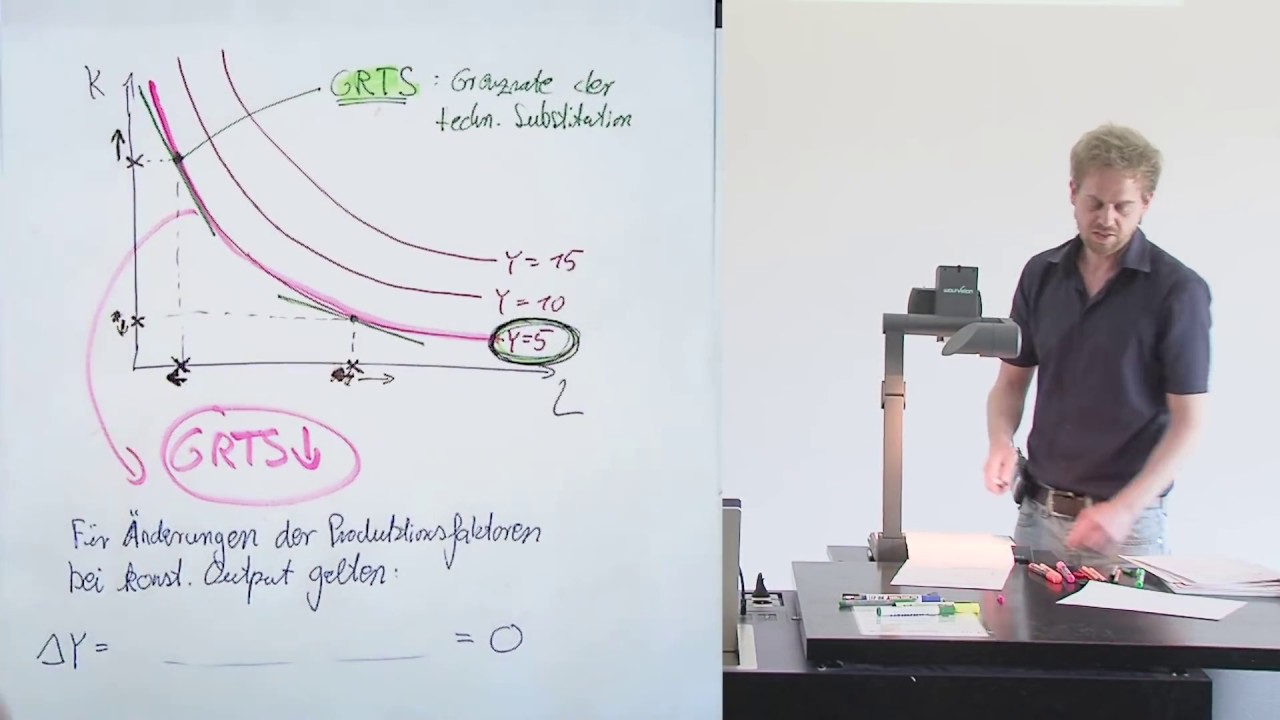 K
GRTS : Grenzrate der
techn. Substitution
Y = 15
Y = 10
Y=5
L
GRTS↓
Für Änderungen der Produktionsfaktoren
bei konst. Output gelten:
ΔY = ____ ____ = 0